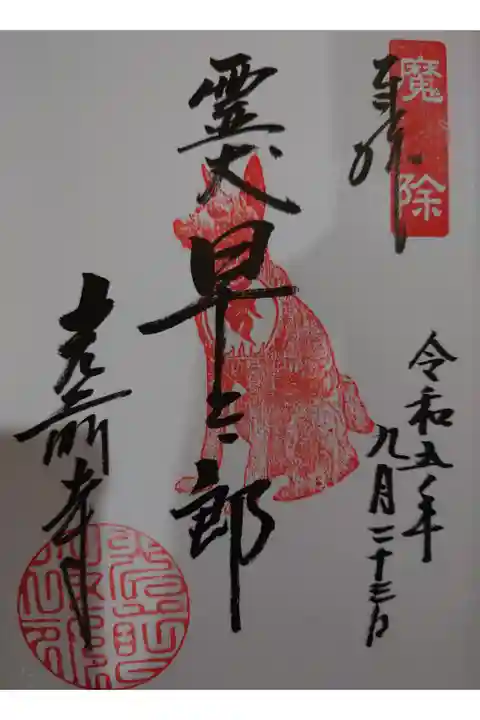 魔除
奉拝
令和五年
九月二十三日
霊犬
早太郎
光前寺